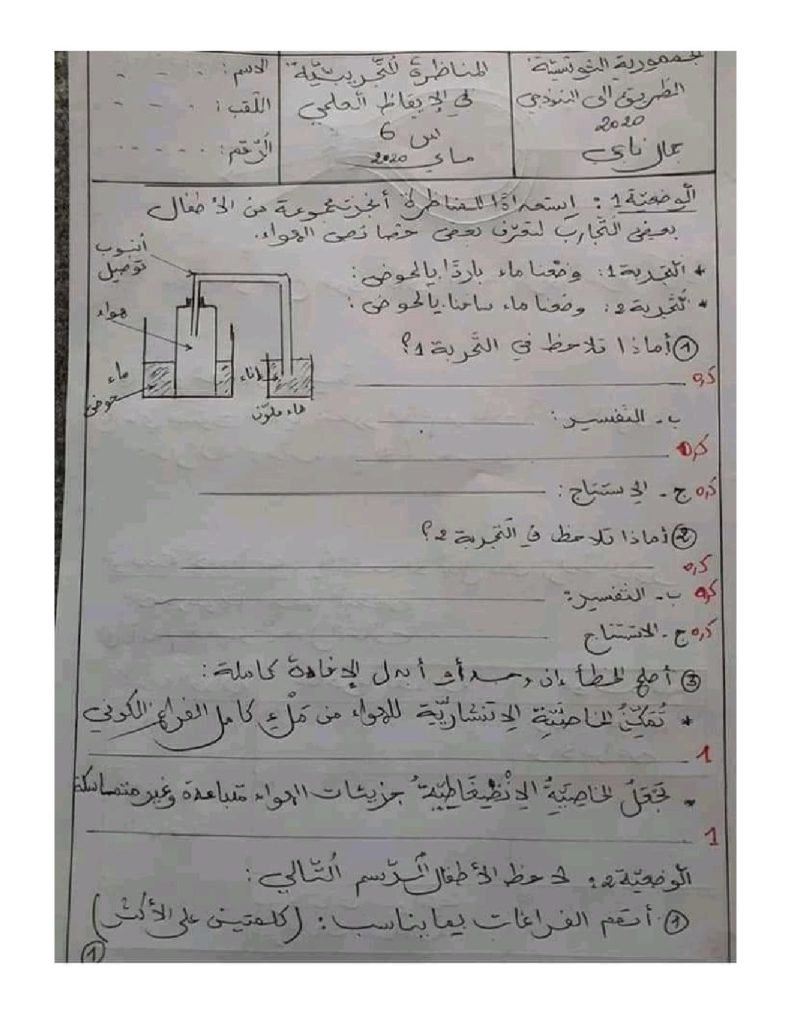 جمهورية التونسية
الطريق إلى النموذجي
2020
جمال نامي
المناظرة التجريبيّة
في الإيقاظ العلمي
س 6
ماي 2020
الاسم: - - -
اللّقب: - - -
الرّقم: - - - -
الوضعيّة 1: إستعدادًا للمناظرة أنجزت مجموعة من الأطفال
بعض التّجارب لتعرّف بعض خصائص الهواء.
* التجربة 1: وضعنا ماء باردًا بالحوض:
* التّجربة 2: وضعنا ماء ساخنا بالحوض:
أنبوب
توصيل
هواء
ماء
حوض
إناء
ماء ملوّن
① أ ماذا تلاحظ في التّجربة 1؟
0,5
ب - التّفسير:
0,5
0,5 ج - الإستنتاج:
② أ ماذا تلاحظ في التّجربة 2؟
0,5
0,5 ب - التّفسير:
0,5 ج - الاستنتاج
③ أصلح الخطأ إن وجد أو أبدل الإفادة كاملة:
* تُمَكِّنُ الخاصيّة الإنتشاريّة للهواء من مَلْءِ كامل الفراغ الكوني
1
* تَجْعَلُ الخاصِيّةُ الإنْضِغَاطِيّةُ جزيئات الهواء متباعدة وغير متماسكة
1
الوضعيّة 2: لاحظ الأطفال الرّسم التّالي:
① أ. أتمم الفراغات بما يناسب: (كلمتين على الأكثر)
①